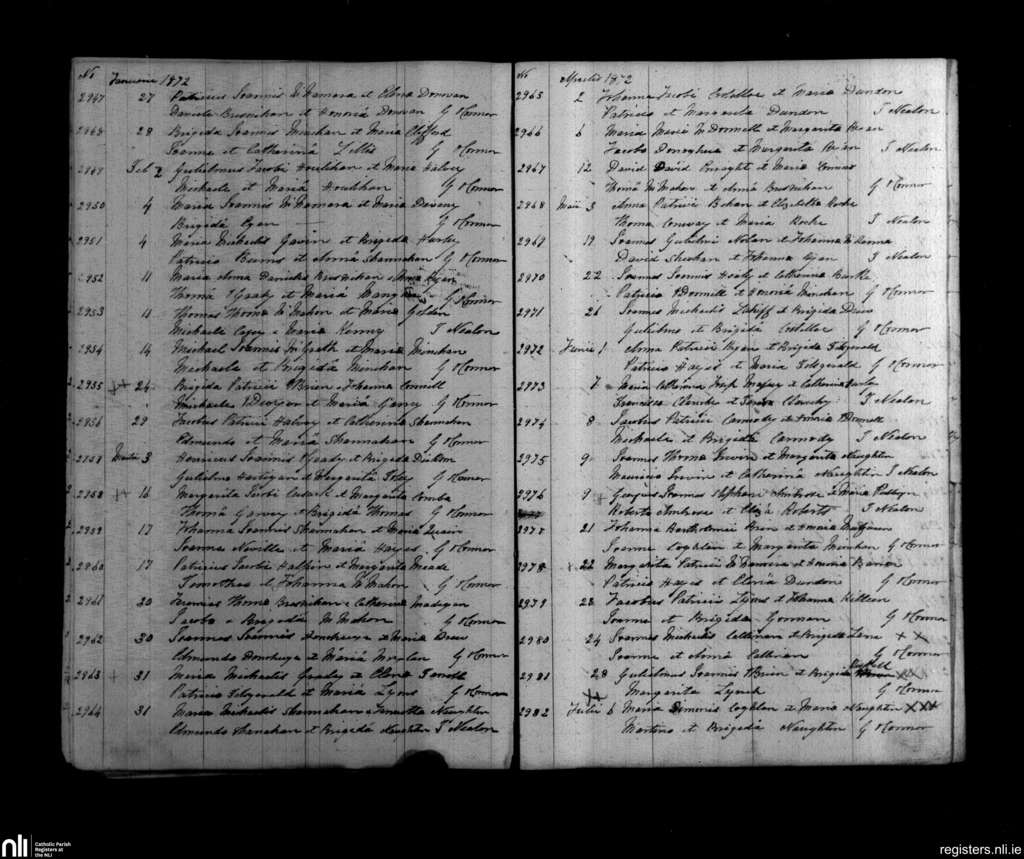 No Januarii 1872
2947 27 Patricius Joannis McNamara et Elena Donovan
Daniele Bresnihan et Honoriâ Donovan G O'Connor
2948 28 Brigida Joannis Minehan et Maria Clifford
Joanne et Catherinâ Lillis G O'Connor
2949 Feb 2 Gulielmus Jacobi Houlihan et Maria Halvey
Michaele et Mariâ Houlihan G O'Connor
2950 4 Maria Joannis McNamara et Maria Deveny
Brigidâ Ryan G O'Connor
2951 4 Maria Michaelis Gavin et Brigida Hurley
Patricio Burns et Annâ Shannahan G O'Connor
2952 11 Maria Anna Danielis Bresnihan et Anna
Thomâ O'Grady et Mariâ G O'Connor
2953 11 Thomas Thoma McMahon et Maria Golden
Michaele et Maria Kenny T Nealon
2954 14 Michael Joannis McGrath et Maria Minehan
Michaele et Brigidâ Minehan G O'Connor
2955 ++ 24 Brigida Patricii O'Brien et Johanna Connell
Michaele et Mariâ Garvy G O'Connor
2956 29 Jacobus Patricii Halvey et Catherina Shannahan
Edmundo et Mariâ Shannahan G O'Connor
2957 Martii 3 Henricus Joannis O'Grady et Brigida
Gulielmo Hartigan et Margaritâ G O'Connor
2958 ++ 16 Margarita Jacobi Cusack et Margarita
Thomâ Garvey et Brigidâ Thomas G O'Connor
2959 17 Johanna Joannis Shannahan et Maria Quain
Joanne Neville et Mariâ Hayes G O'Connor
2960 17 Patricius Jacobi Halpin et Margarita Meade
Timotheo et Johanna McMahon G O'Connor
2961 30 Jeremias Thoma Bresnihan et Catherina Madigan
Jacobo et Brigidâ McMahon G O'Connor
2962 30 Joannes Joannis Donohuye et Maria Drew
Edmundo Donohuye et Mariâ G O'Connor
2963 + 31 Maria Michaelis Grady et Elena
Patricio Fitzgerald et Mariâ Lyons G O'Connor
2964 31 Maria Michaelis Shannahan et Naughten
Edmundo Shanahan et Brigidâ Naughten T Nealon
No Aprilis 1872
2965 2 Johanna Jacobi Costelloe et Maria Dundon
Patricio et Margarita Dundon T Nealon
2966 6 Maria McDonnell et Margarita Brien
Jacobo Donoghue et Margarita Brien T Nealon
2967 12 David David Enright et Maria
Thomâ McMahon et Annâ Bresnihan G O'Connor
2968 Maii 3 Anna Patricii Behan et Elizabetha Roche
Thoma Conway et Maria Roche T Nealon
2969 19 Joannes Gulielmi Nolan et Johanna
David Sheehan et Johanna Ryan T Nealon
2970 22 Joannes Joannis Healy et Catherina Burke
Patricio O'Donnell et Honoriâ Minehan G O'Connor
2971 26 Joannes Michaelis et Brigida Drew
Gulielmo et Brigidâ Costelloe G O'Connor
2972 Junii 1 Anna Patricii Ryan et Brigida Fitzgerald
Patricio Hayes et Maria Fitzgerald G O'Connor
2973 7 Maria Catherina et Catherina
T Nealon
2974 8 Jacobus Patricii Carmody et Maria O'Donnell
Michaele et Brigida Carmody T Nealon
2975 9 Joannes Thoma Irwin et Margarita Naughten
Mauricio Irwin et Catherinâ Naughten T Nealon
2976 9 + Georgius Joannes Stephani Ambrose et Maria
Roberto Ambrose et Eliza Roberts T Nealon
2977 21 Johanna Bartholomei Brien et Maria
Joanne Coghlan et Margarita Minehan G O'Connor
2978 + 22 Margarita Patricii McNamara et Honoria
Patricio Hayes et Elena Dundon G O'Connor
2979 23 Jacobus Patricii Lyons et Johanna Killeen
Joanne et Brigida Gorman G O'Connor
2980 24 Joannes Michaelis Callinan et Brigida Lane ++
Joanne et Annâ Callinan G O'Connor
2981 28 Gulielmus Joannis O'Brien et Brigida
++ Margarita Lynch G O'Connor
2982 Julii 6 Maria Coghlan et Maria Naughten XXX
Martino et Brigidâ Naughten G O'Connor
nli
Catholic Parish
Registers at
the NLI
registers.nli.ie